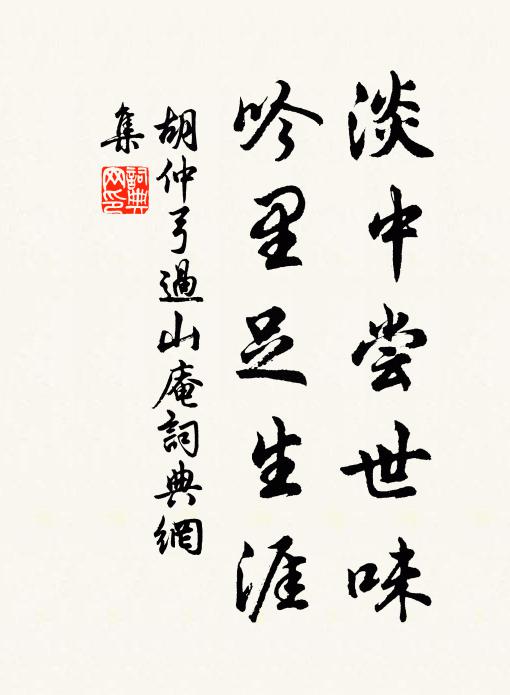 淡中尝世味
吟里足生涯
胡仲弓過山庵詞典網
集
詞典
网印